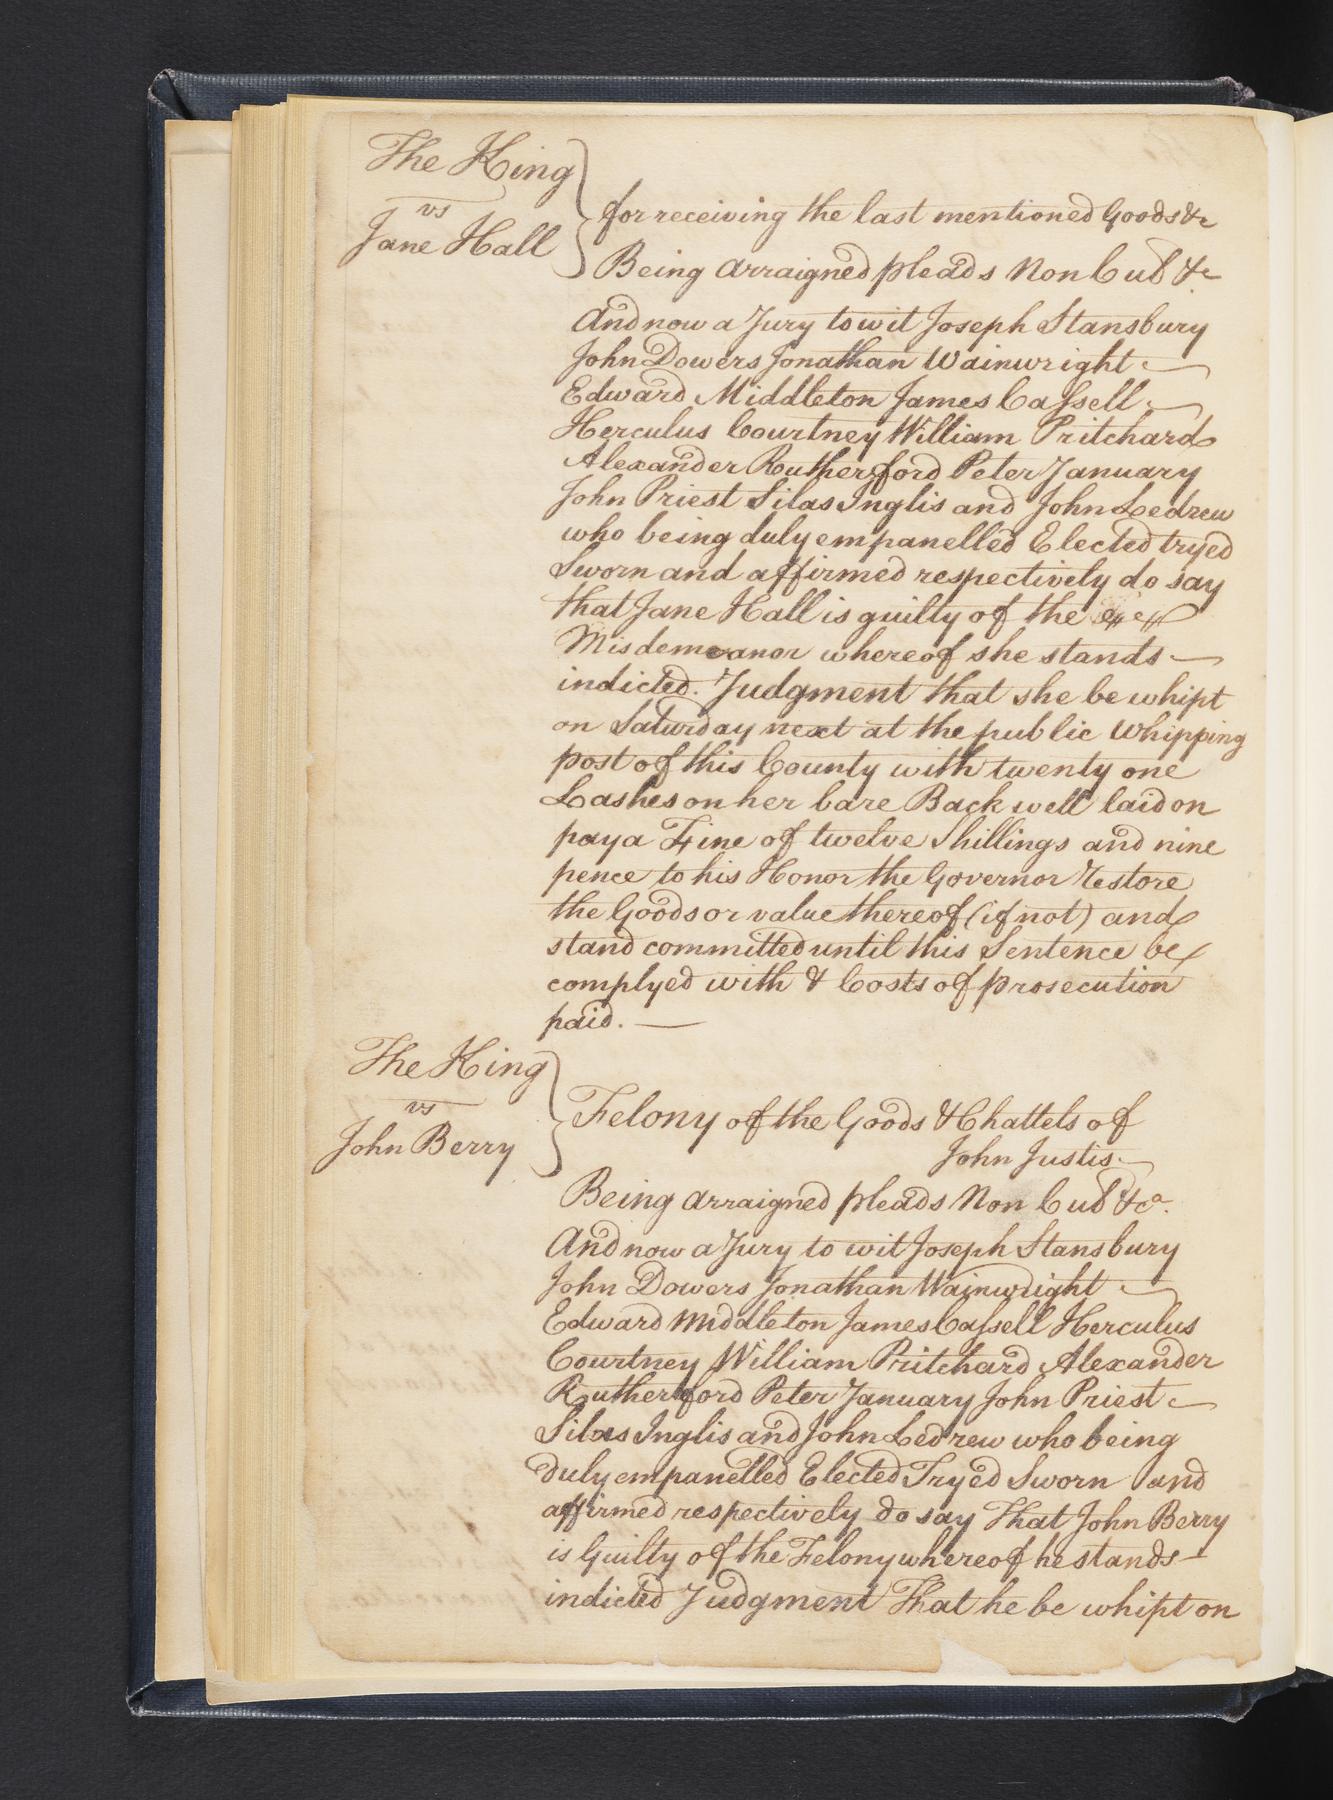 The King
vs
Jane Hall
for receiving the last mentioned Goods &c
Being arraigned pleads Non Cul &c
And now a Jury to wit Joseph Stansbury
John Dowers Jonathan Wainwright
Edward Middleton James Cassell
Herculus Courtney William Pritchard
Alexander Rutherford Peter January
John Priest Silas Inglis and John Ledrew
who being duly empanelled Elected tryed
Sworn and affirmed respectively do say
that Jane Hall is guilty of the
Misdemeanor whereof she stands
indicted. Judgment that she be whipt
on Saturday next at the public Whipping
post of this County with twenty one
Lashes on her bare Back well laid on
pay a Fine of twelve Shillings and nine
pence to his Honor the Governor Restore
the Goods or value thereof (if not) and
stand committed until this Sentence be
complyed with & Costs of prosecution
paid.
The King
vs
John Berry
Felony of the Goods & Chattels of
John Justis
Being arraigned pleads Non Cul &ca.
And now a Jury to wit Joseph Stansbury
John Dowers Jonathan Wainwright
Edward Middleton James Cassell Herculus
Courtney William Pritchard Alexander
Rutherford Peter January John Priest
Silas Inglis and John Ledrew who being
duly empanelled Elected Tryed Sworn and
affirmed respectively do say That John Berry
is Guilty of the Felony whereof he stands
indicted Judgment That he be whipt on